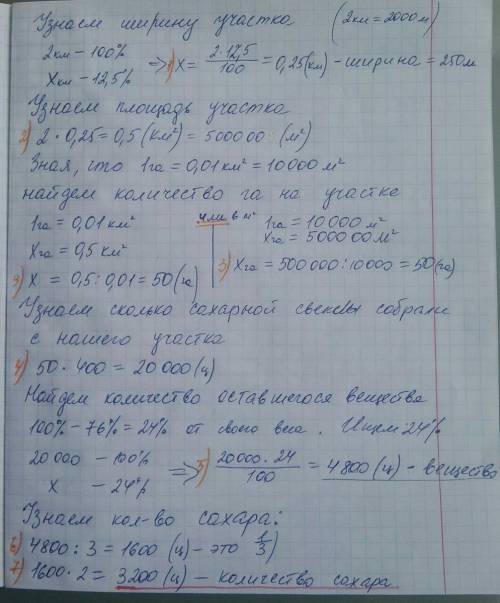 Узнаем ширину участка (2км = 2000м)
2км – 100%
xкм – 12,5% => 1) x = 2·12,5/100 = 0,25 (км) – ширина = 250м
Узнаем площадь участка
2) 2 · 0,25 = 0,5 (км²) = 500000 (м²)
Зная, что 1га = 0,01 км² = 10000 м²
найдем количество га на участке
1га = 0,01 км² или в м² 1га = 10000 м²
xга = 0,5 км² xга = 500000 м²
3) x = 0,5 : 0,01 = 50 (га) 3) xга = 500000 : 10000 = 50 (га)
Узнаем сколько сахарной свеклы собрали
с нашего участка
4) 50 · 400 = 20000 (ц)
Найдем количество оставшегося вещества
100% – 76% = 24% от своего веса. Ищем 24%
20000 – 100%
x – 24% => 5) 20000 · 24/100 = 4800 (ц) – вещество
Узнаем кол-во сахара:
6) 4800 : 3 = 1600 (ц) – это 1/3)
7) 1600 · 2 = 3200 (ц) – количество сахара